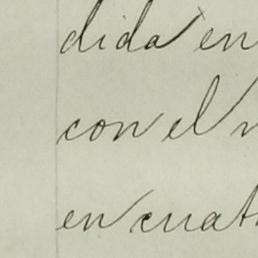 dida en
con el
en cuat